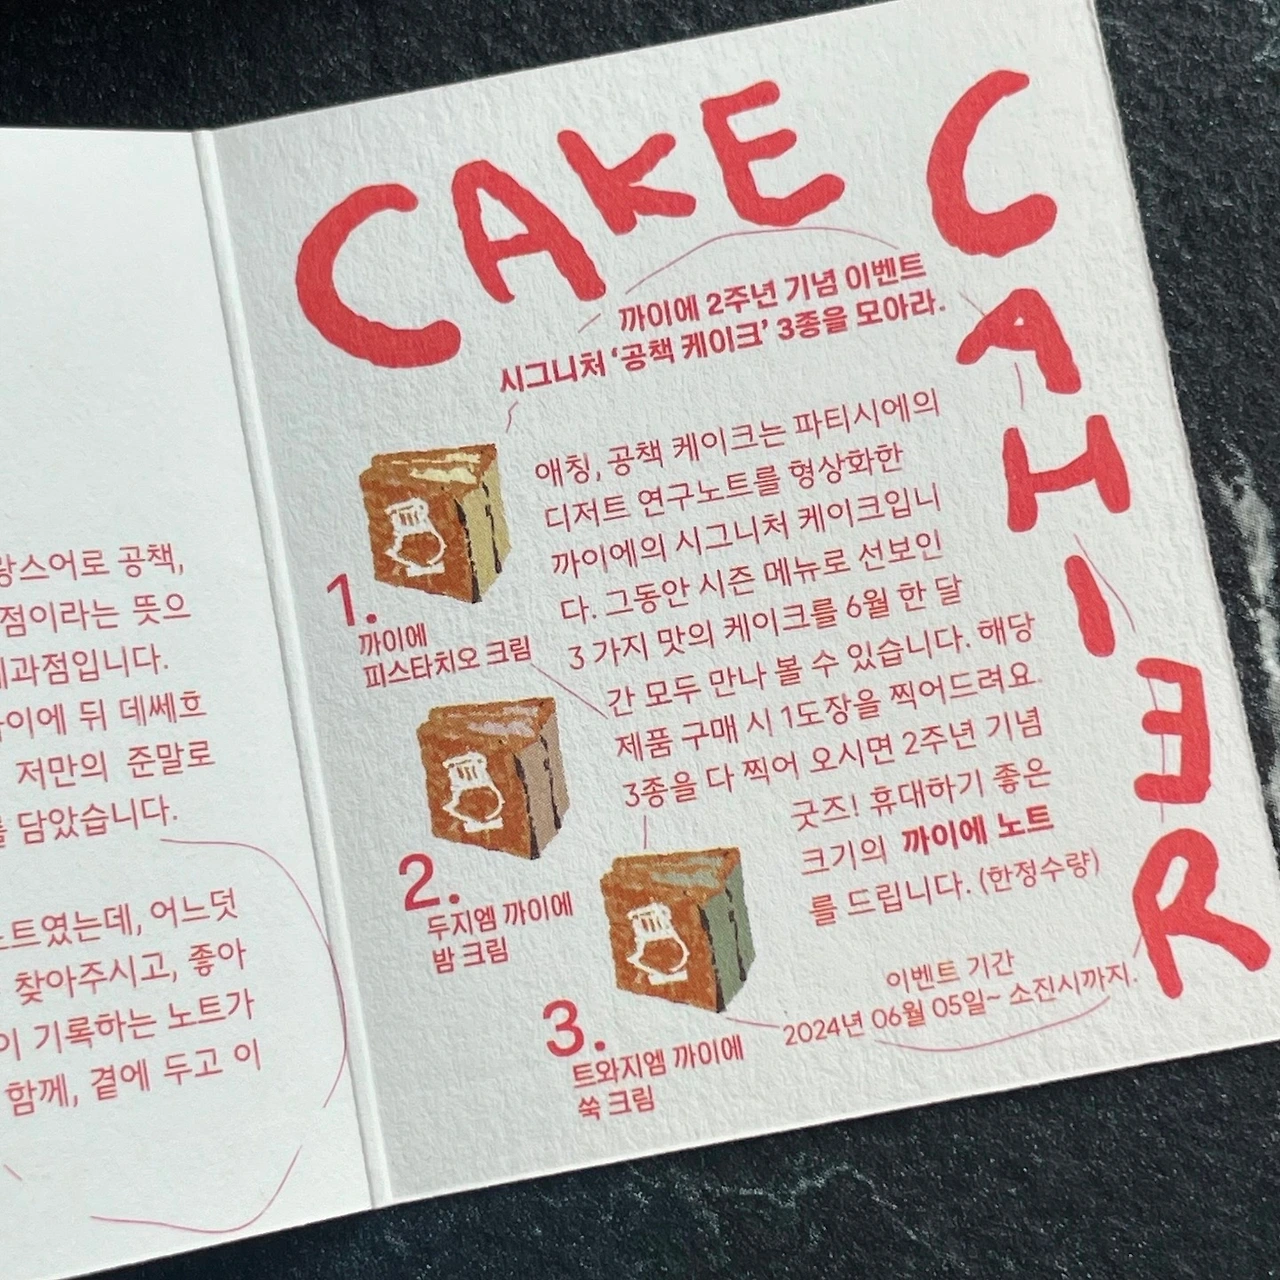 CAKE
CAHIER
까이에 2주년 기념 이벤트
시그니처 ‘공책 케이크’ 3종을 모아라.
애칭, 공책 케이크는 파티시에의
디저트 연구노트를 형상화한
까이에의 시그니처 케이크입니
다. 그동안 시즌 메뉴로 선보인
3 가지 맛의 케이크를 6월 한 달
간 모두 만나 볼 수 있습니다. 해당
제품 구매 시 1도장을 찍어드려요.
3종을 다 찍어 오시면 2주년 기념
굿즈! 휴대하기 좋은
크기의 까이에 노트
를 드립니다. (한정수량)
1.
까이에
피스타치오 크림
2.
두지엠 까이에
밤 크림
3.
트와지엠 까이에
쑥 크림
이벤트 기간
2024년 06월 05일~ 소진시까지.
공책,
점이라는 뜻으
과점입니다.
뒤 데쎄흐
저만의 준말로
담았습니다.
어느덧
찾아주시고, 좋아
기록하는 노트가
함께, 곁에 두고 이